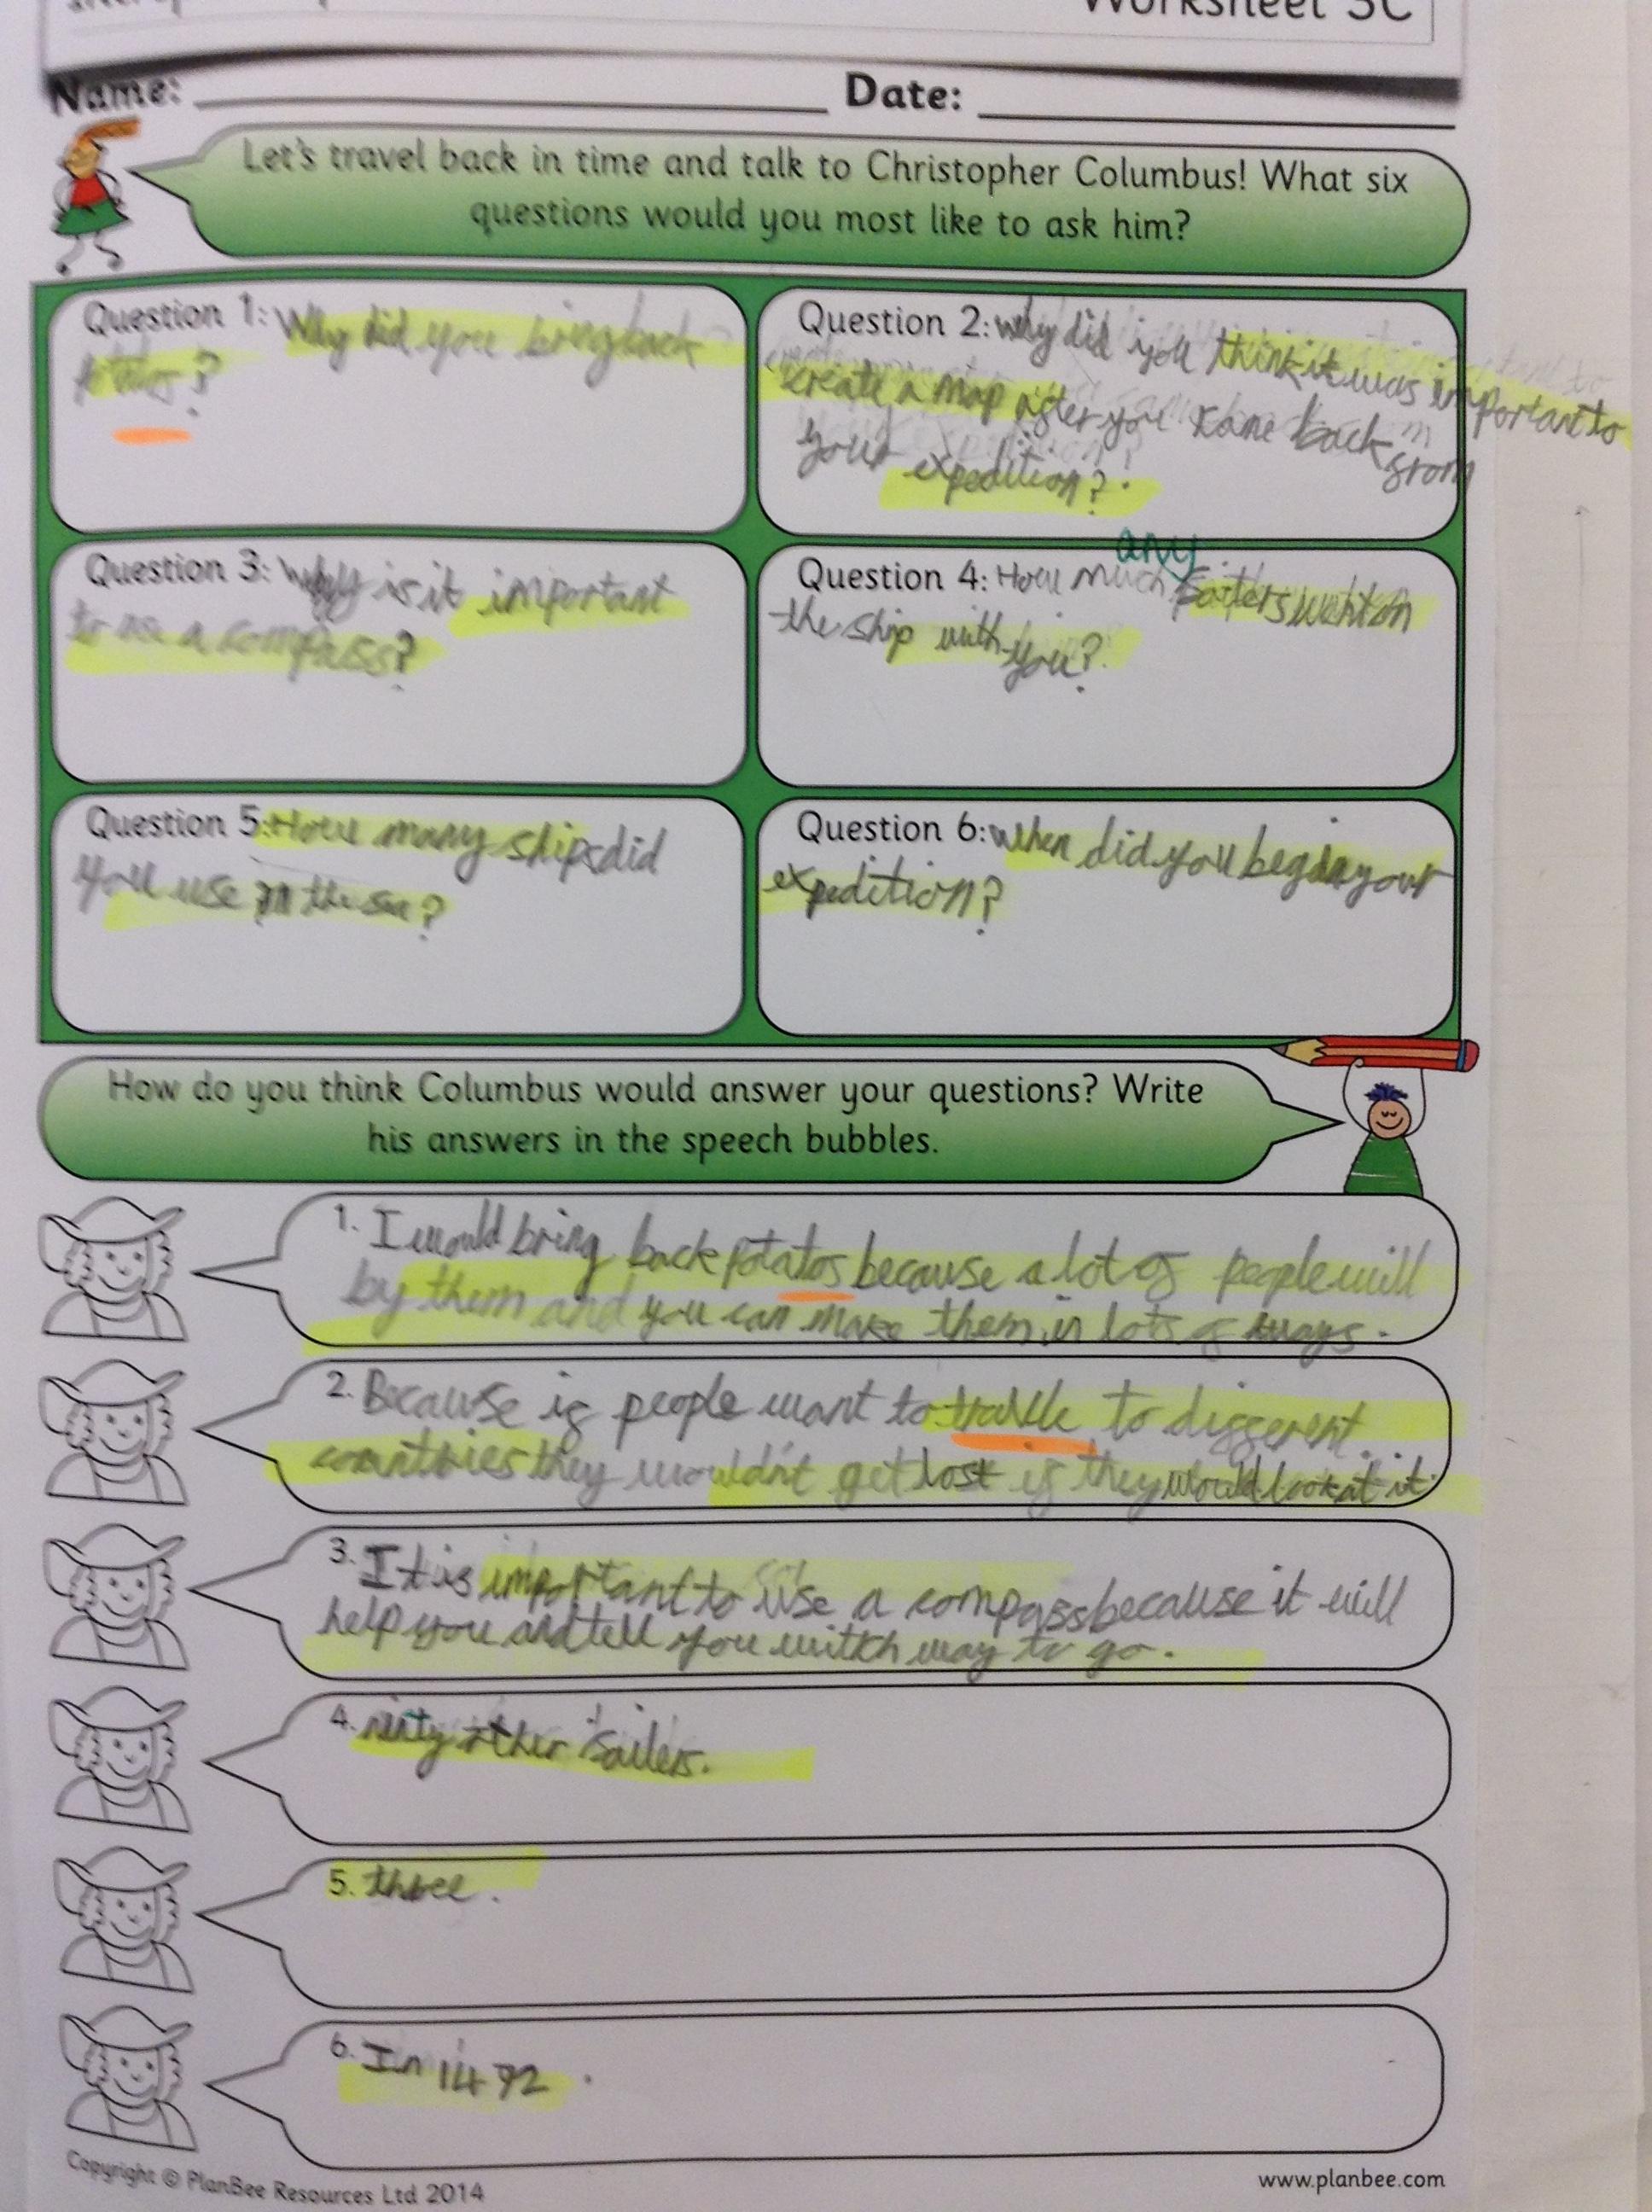 Worksheet 3C
Name: Date:
Let's travel back in time and talk to Christopher Columbus! What six
questions would you most like to ask him?
Question 1: Why did you bring back
?
Question 2: why did you think it was important to
create a map after you came back from
your expedition?
Question 3: Why is it important
to use a compass?
any
Question 4: How much sailers went on
the ship with you?
Question 5: How many ships did
you use in the sea?
Question 6: when did you begin your
expedition?
How do you think Columbus would answer your questions? Write
his answers in the speech bubbles.
1. I would bring back potatos because a lot of people will
by them and you can make them in lots of ways.
2. Because if people want to to different
countries they wouldn't get lost if they would look at it.
3. It is important to use a compass because it will
help you and tell you witch way to go.
4. ninty other sailers.
5. three.
6. In 1492.
Copyright © PlanBee Resources Ltd 2014
www.planbee.com